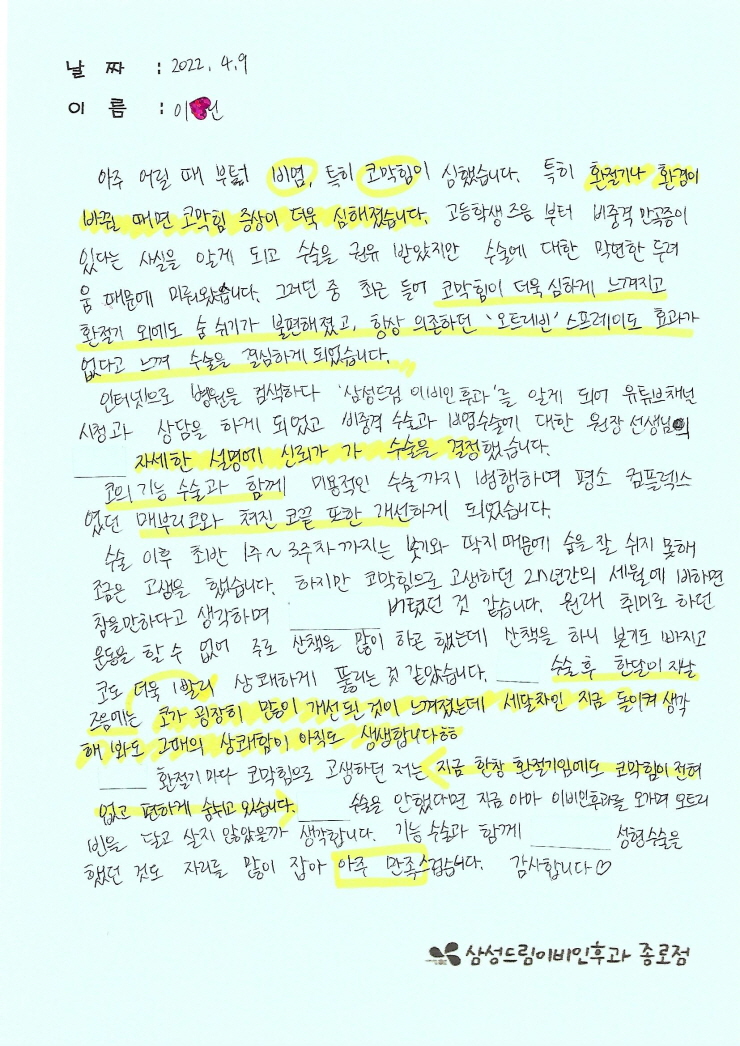 날 짜 : 2022. 4. 9
이 름 : 이 건
아주 어릴 때 부터 비염, 특히 코막힘이 심했습니다. 특히 환절기나 환경이
바뀔 때면 코막힘 증상이 더욱 심해졌습니다. 고등학생즈음 부터 비중격 만곡증이
있다는 사실을 알게 되고 수술을 권유 받았지만 수술에 대한 막연한 두려
움 때문에 미뤄왔습니다. 그러던 중 최근 들어 코막힘이 더욱 심하게 느껴지고
환절기 외에도 숨 쉬기가 불편해졌고, 항상 의존하던 '오트리빈' 스프레이도 효과가
없다고 느껴 수술을 결심하게 되었습니다.
인터넷으로 병원을 검색하다 '삼성드림 이비인후과'를 알게 되어 유튜브채널
시청과 상담을 하게 되었고 비중격 수술과 비염수술에 대한 원장선생님의
자세한 설명에 신뢰가 가 수술을 결정했습니다.
코의 기능 수술과 함께 미용적인 수술까지 병행하며 평소 컴플렉스
였던 매부리코와 쳐진 코끝 또한 개선하게 되었습니다.
수술 이후 초반 1주~3주차까지는 붓기와 딱지때문에 숨을 잘 쉬지 못해
조금은 고생을 했습니다. 하지만 코막힘으로 고생하던 2n년간의 세월에 비하면
참을만하다고 생각하며 버텼던 것 같습니다. 원래 취미로 하던
운동을 할 수 없어 주로 산책을 많이 하곤 했는데 산책을 하니 붓기도 빠지고
코도 더욱 빨리 상쾌하게 뚫리는 것 같았습니다. 수술 후 한달이 지날
즈음에는 코가 굉장히 많이 개선된 것이 느껴졌는데 세달차인 지금 돌이켜 생각
해 봐도 그때의 상쾌함이 아직도 생생합니다ㅎㅎ
환절기 마다 코막힘으로 고생하던 저는 지금 한창 환절기임에도 코막힘이 전혀
없고 편하게 숨쉬고 있습니다. 수술을 안했다면 지금 아마 이비인후과를 오가며 오트리
빈을 달고 살지 않았을까 생각합니다. 기능 수술과 함께 성형수술을
했던 것도 자리를 많이 잡아 아주 만족스럽습니다. 감사합니다♡
삼성드림이비인후과 종로점